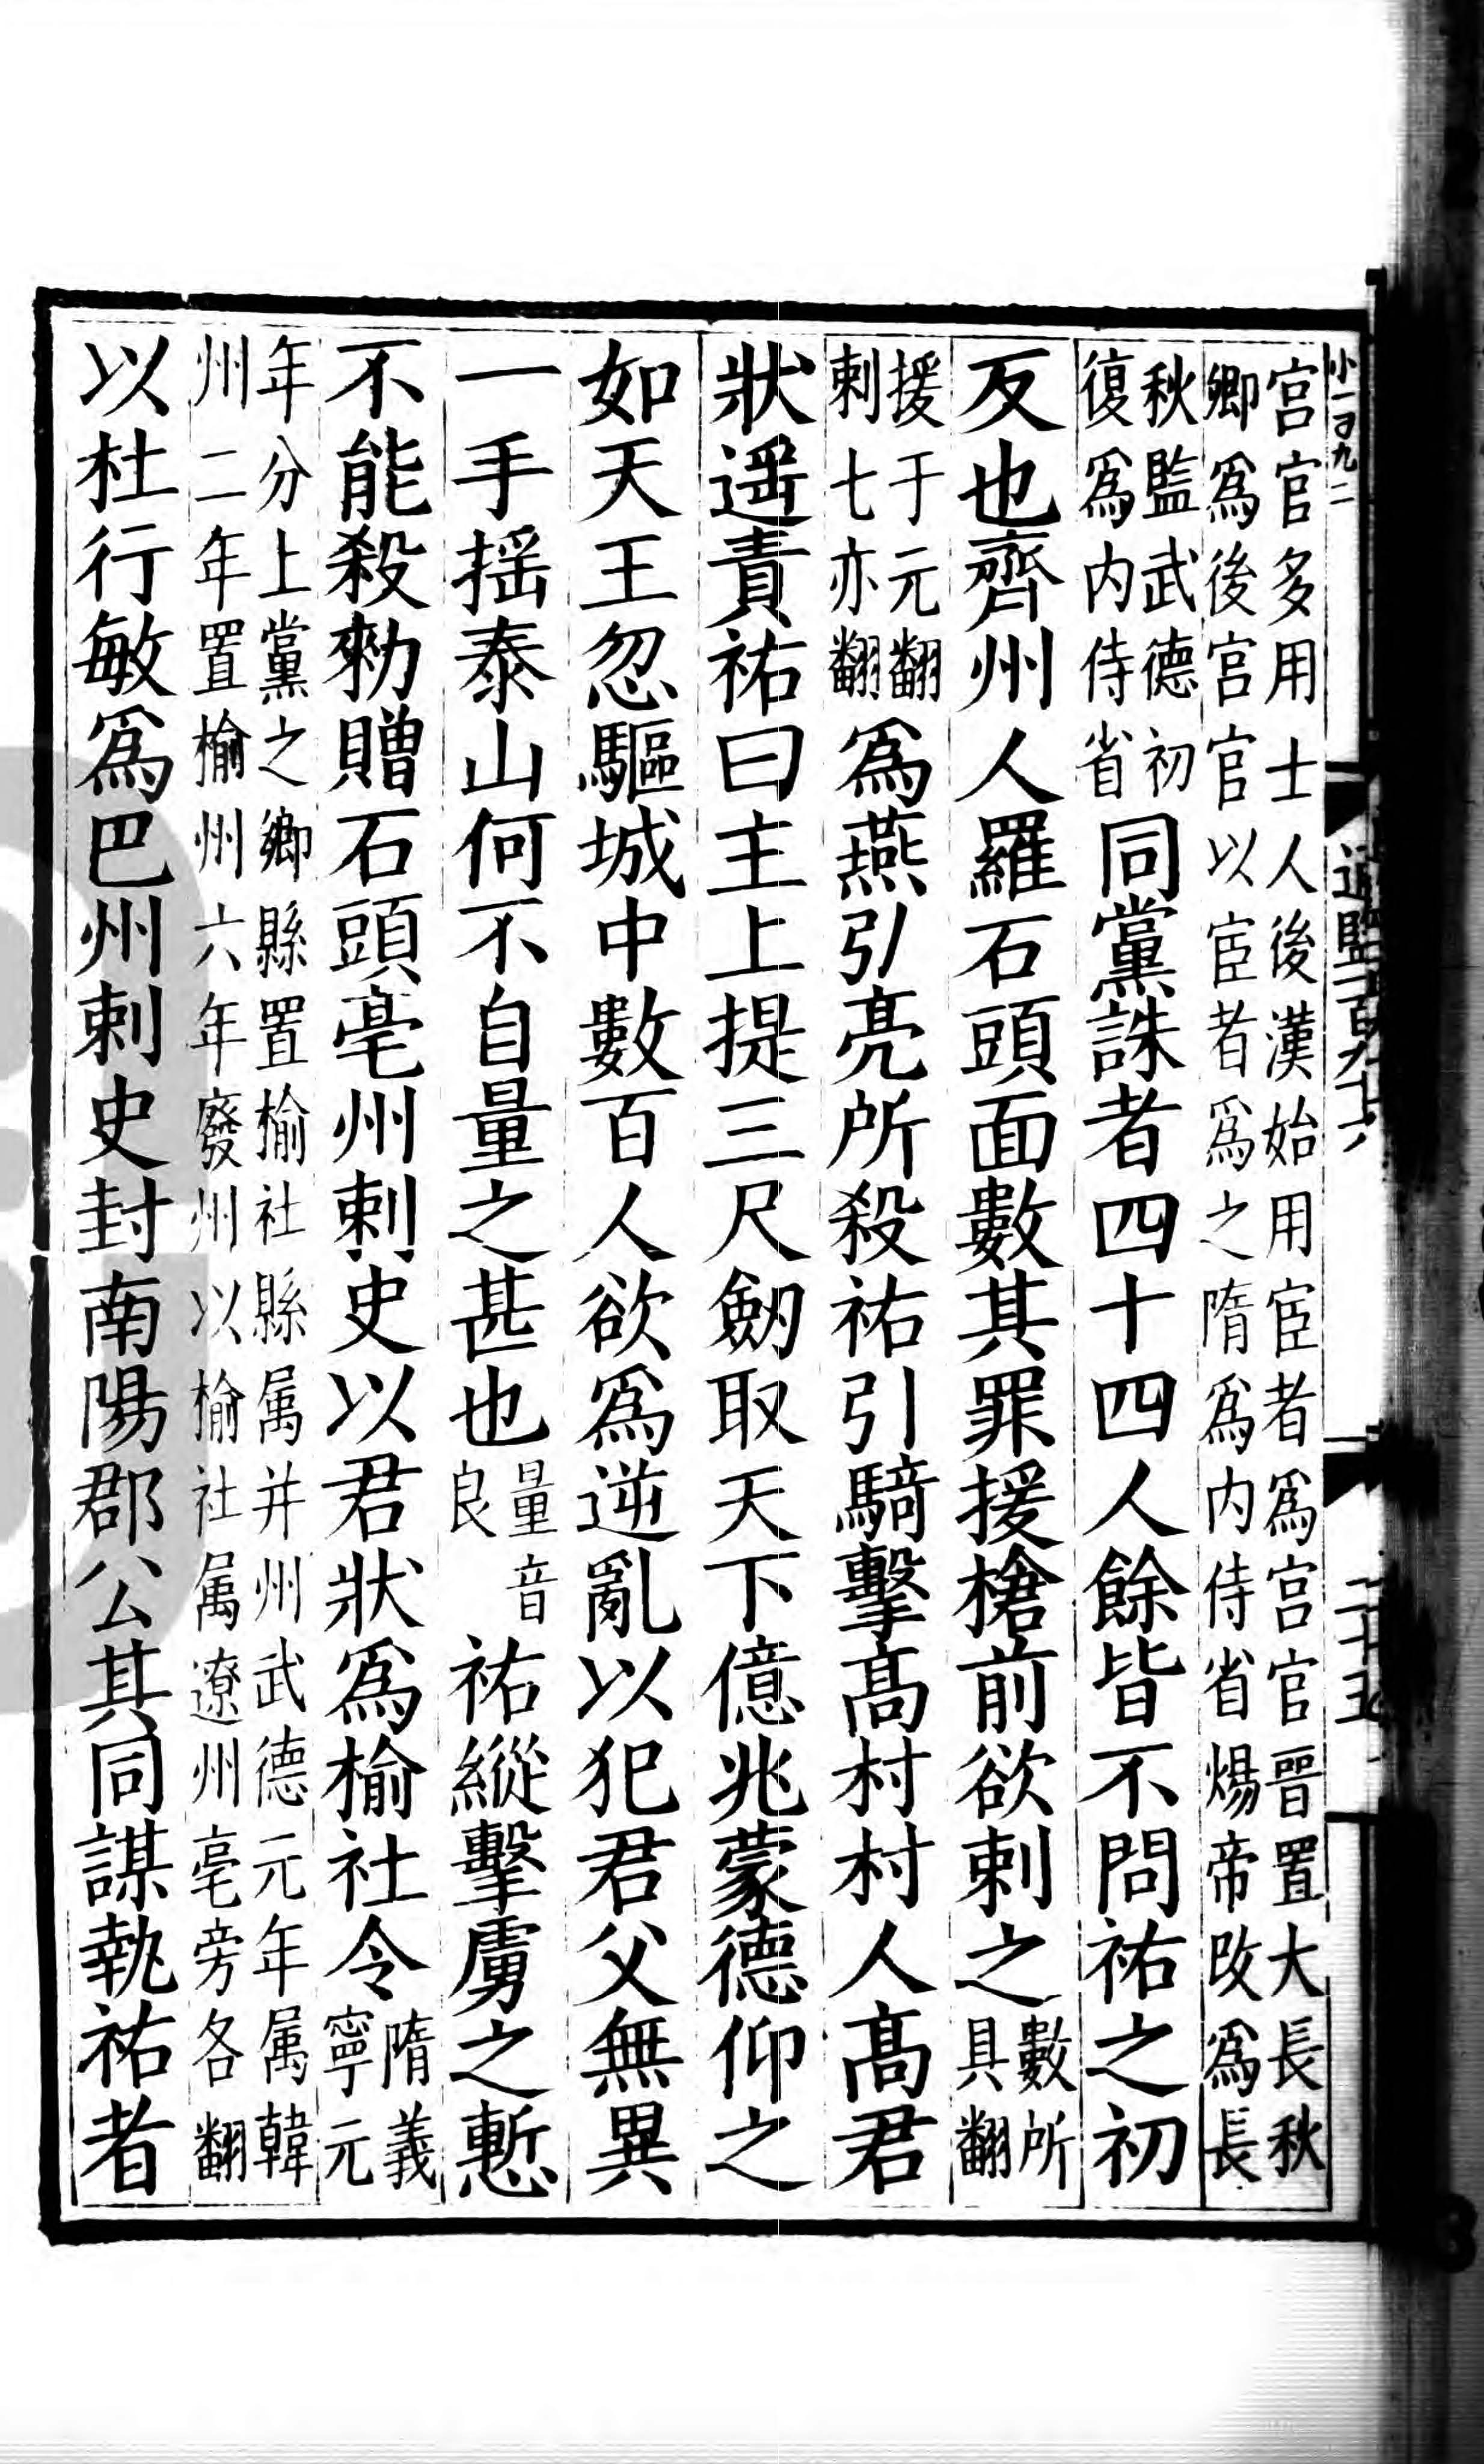 宮官多用士人後漢始用宦者爲宮官晉置大長秋
卿爲後宮官以宦者爲之隋爲内侍省煬帝改爲長
秋監武德初
復爲内侍省
同黨誅者四十四人餘皆不問祐之初
反也齊州人羅石頭面數其罪援槍前欲刺之
數所
具翻
援于元翻
刺七亦翻
爲燕引亮所殺祐引騎擊髙村村人髙君
狀遥責祐曰主上提三尺劒取天下億兆蒙德仰之
如天王忽驅城中數百人欲爲逆亂以犯君父無異
一手揺泰山何不自量之甚也
量音
良
祐縱擊虜之慙
不能殺勑贈石頭亳州刺史以君狀爲榆社令
隋義
寧元
年分上黨之鄉縣置榆社縣属并州武德元年属韓
州二年置榆州六年廢州以榆社属遼州亳旁各翻
以杜行敏爲巴州刺史封南陽郡公其同謀執祐者
通鑑一百九十六
二十五